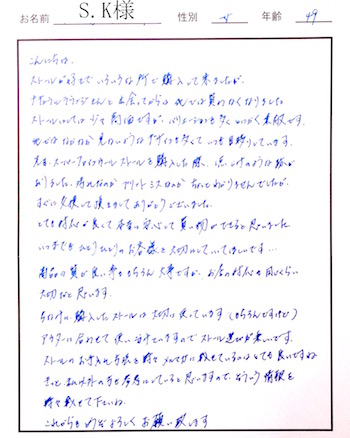 お名前 S.K様 性別 女 年齢 49
こんにちは。
ストールが好きでいろいろな所で購入して来ましたが、
ナチュラルプランジさんと出会ってからは他では買わなくなりました
ストールにしては少々高価ですが、バリエーションも多くとにかく素敵です。
他ではなかなか見ないようなデザインも多くていつも目移りしています。
先日、スーパーファインウールストールを購入した際、流しのような
おりました。汚れなのか プリントミスなのか ちょっとわかりませんでしたが、
すぐに交換して頂きましてありがとうございました。
とても対応が良くて本当に安心して買い物ができると思いました
いつまでもひとりひとりのお客様を大切にしていてほしいです…
商品の質が良い事ももちろん大事ですが、お店の対応も同じくらい
大切だと思います。
もちろん購入したストールは大切に使っています(もちろんですけど)
アウターに合わせて使い分けていますのでストール選びが楽しいです。
ストールのお手入れ方法を時々メルマガに載せているのはとても良いですね
きっと私以外の方も参考にしていると思いますので、そういう情報を
時々載せて下さいね。
これからもどうぞよろしくお願い致します